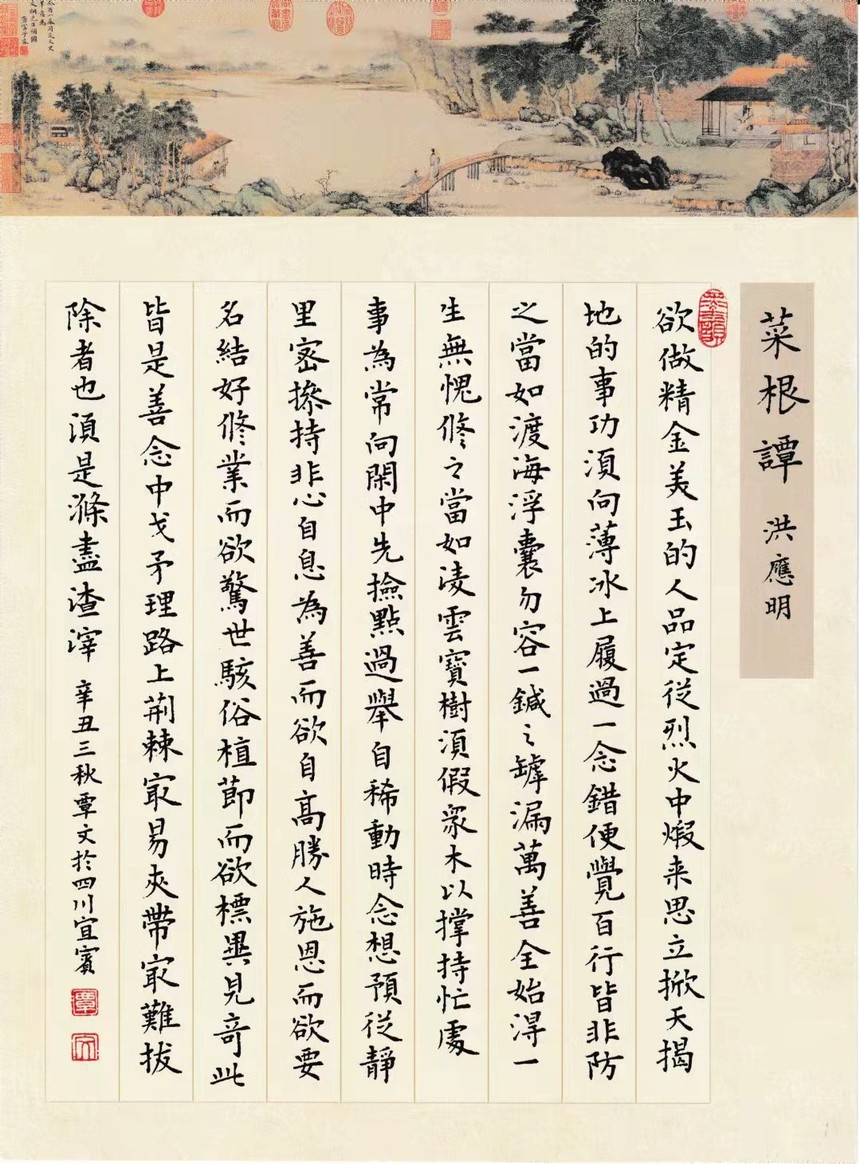 菜根譚 洪應明
欲做精金美玉的人品定從烈火中煅来思立掀天揭
地的事功須向薄冰上履過一念錯便覺百行皆非防
之當如渡海浮囊勿容一鍼之罅漏萬善全始得一
生無愧修之當如凌雲寶樹須假衆木以撑持忙處
事為常向閑中先撿點過舉自稀動時念想預從靜
里密操持非心自息為善而欲自高勝人施恩而欲要
名結好修業而欲驚世駭俗植節而欲標異見奇此
皆是善念中戈矛理路上荆棘最易夾帶最難拔
除者也須是滌盡渣滓 辛丑三秋覃文於四川宜賓
覃
文